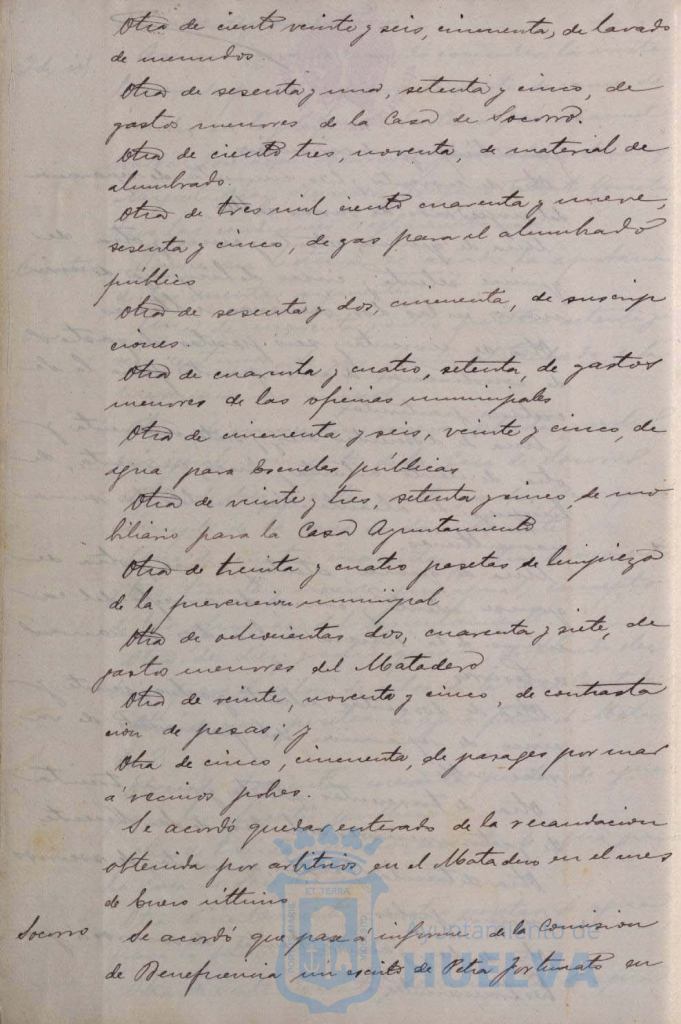 Otra de ciento veinte y seis, cincuenta, de lavado
de menudos.
Otra de sesenta y una, setenta y cinco, de
gastos menores de la Casa de Socorro.
Otra de ciento tres, noventa, de material de
alumbrado.
Otra de tres mil ciento cuarenta y nueve,
sesenta y cinco, de gas para el alumbrado
público
Otra de sesenta y dos, cincuenta, de suscrip
ciones.
Otra de cuarenta y cuatro, setenta, de gastos
menores de las oficinas municipales
Otra de cincuenta y seis, veinte y cinco, de
agua para Escuelas públicas
Otra de veinte y tres, setenta y cinco, de mo
biliario para la Casa Ayuntamiento
Otra de treinta y cuatro pesetas de limpieza
de la prevencion municipal
Otra de ochocientas dos, cuarenta y siete, de
gastos menores del Matadero
Otra de veinte, noventa y cinco, de contrasta
cion de pesas; y
Otra de cinco, cincuenta, de pasages por mar
á vecinos pobres.
Se acordó quedar enterado de la recaudacion
obtenida por arbitrios en el Matadero en el mes
de Enero último
Socorro
Se acordó que pase á informe de la Comision
de Beneficencia un escrito de Petra Fortunato en
Ayuntamiento de
HUELVA